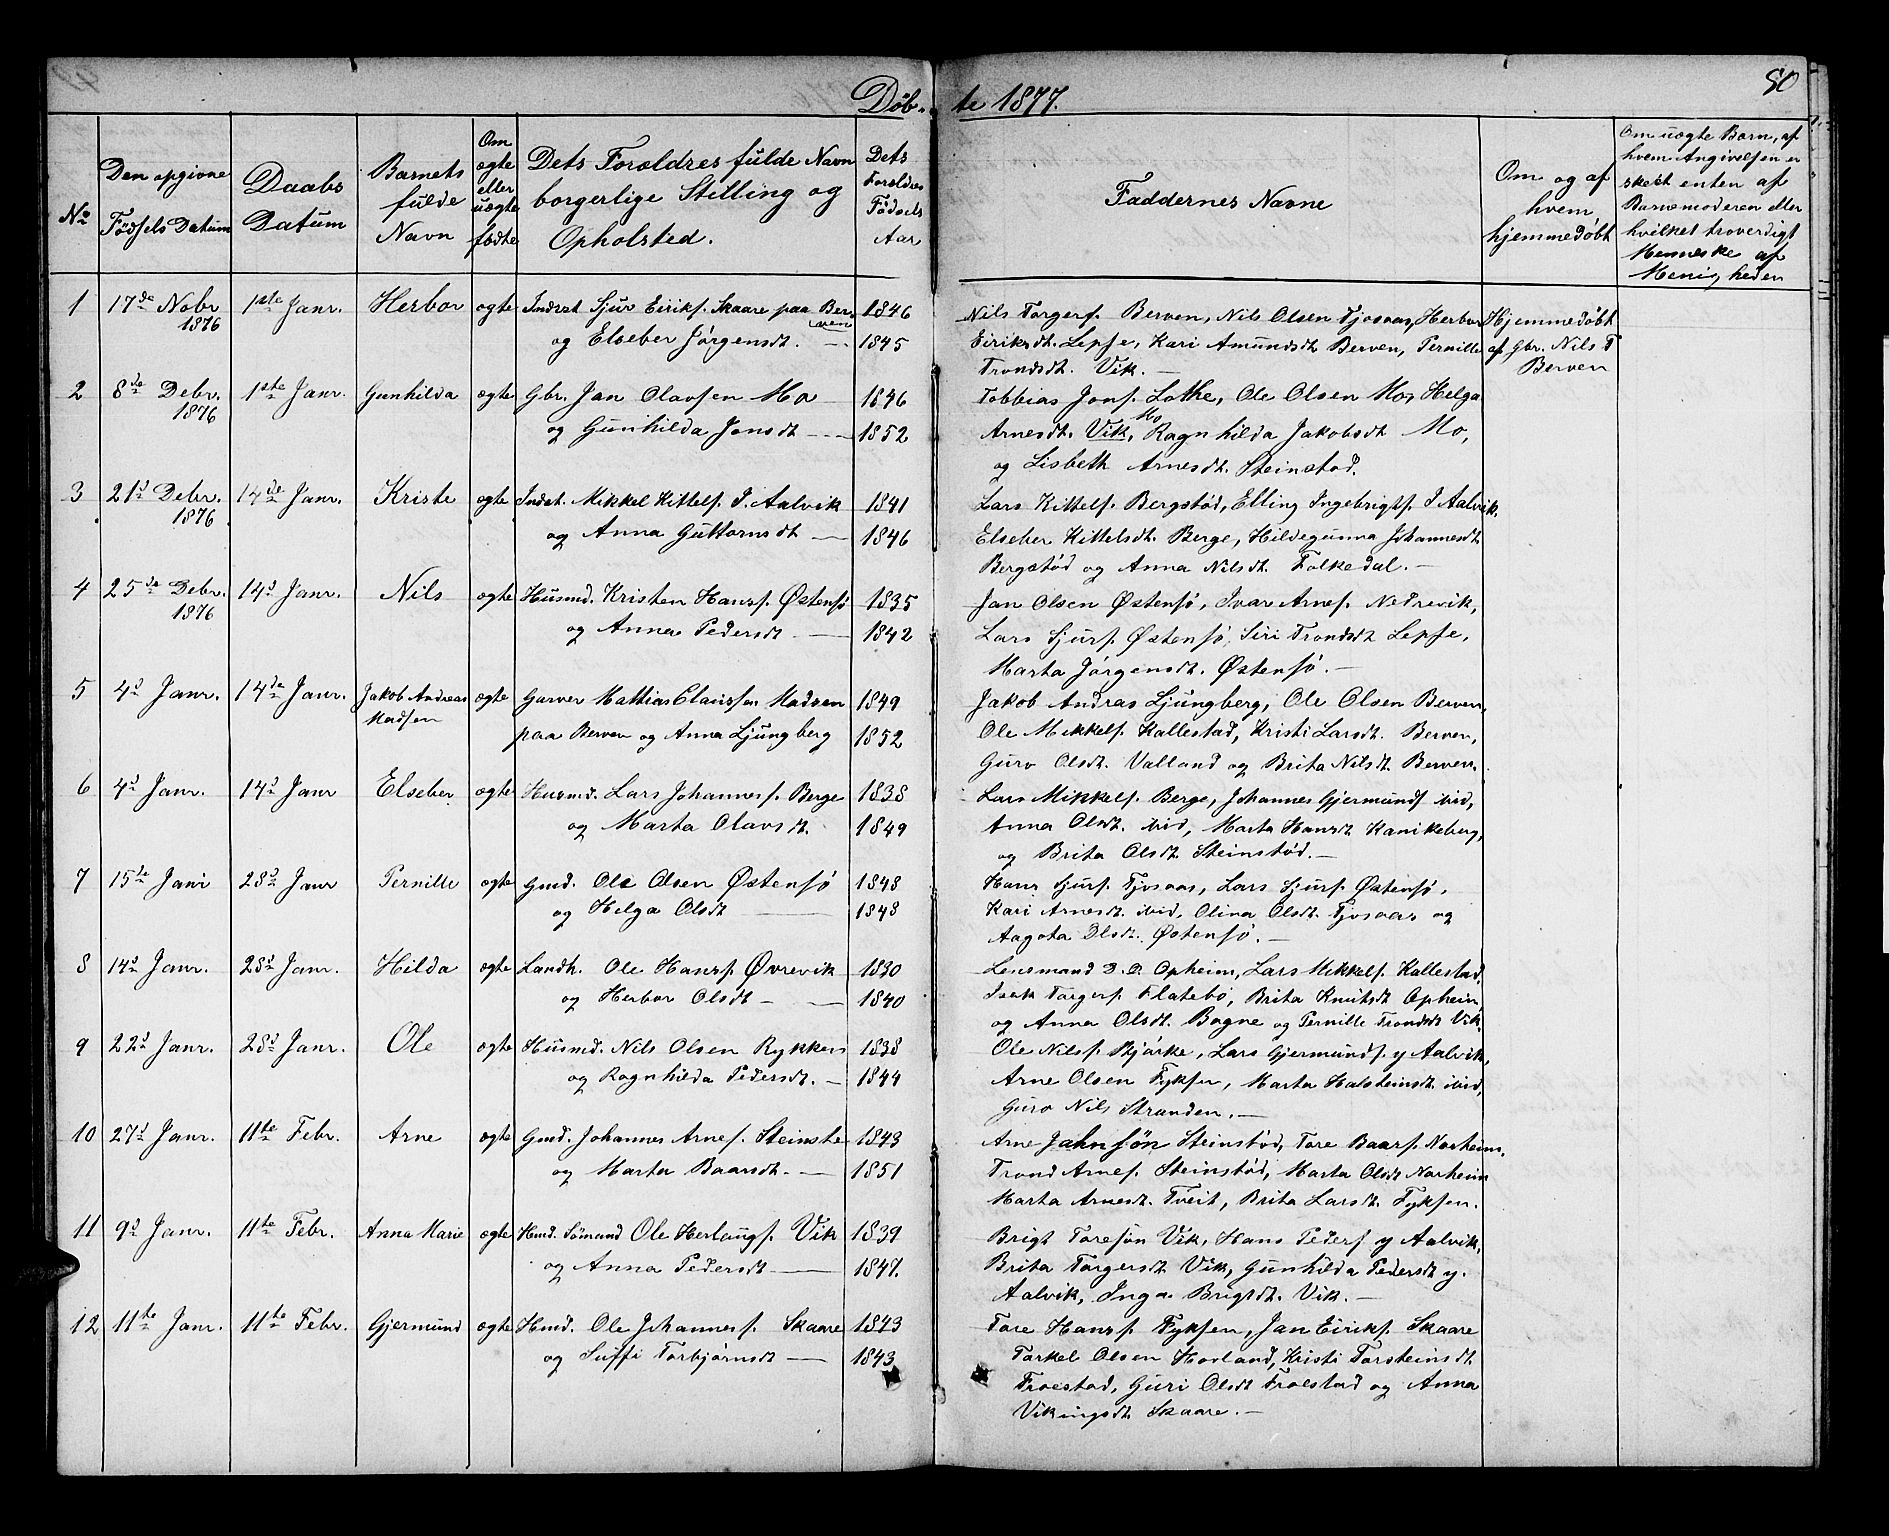 80
Døb- te 1877.
No
Den opgivne Fødsels Datum
Daabs Datum
Barnets fulde Navn
Om ægte eller uægte fødte
Dets Forældres fulde Navn borgerlige Stilling og Opholsted.
Dets Forældres Fødsels Aar
Faddernes Navne
Om og af hvem hjemmedøbt
Om uægte Barn, af hvem Angivelsen er skeet enten af Barnemoderen eller hvilket troverdigt Menneske af Menigheden
1 17de Nobr. 1ste Janr. Herbor ægte Inderst Sjur Eirikf. Skaare paa Ber- 1846 Nils Torgerf. Berven, Nils Olsen Tjosaas, Herbor Hjemmedøbt
1876 ven
og Elseber Jørgensdt. — 1845 Eiriksdt. Lepse, Kari Amundsdt Berven, Pernille af Gbr. Nils T
Trondsdt. Vik. — Berven
2 8de Debr. 1ste Janr. Gunhilda ægte Gbr. Jan Olavsen Mo 1846 Tobbias Jonf. Lothe, Ole Olsen Mo, Helga
1876 og Gunhilda Jonsdt — 1852 Arnesdt. Vik, Mo Ragnhilda Jakobsdt Mo,
og Lisbeth Arnesdt. Steinstød.
3 21d Debr. 14de Janr. Kriste ægte Indst. Mikkel Kittelf. I. Aalvik 1841 Lars Kittelf. Bergstød, Elling Ingebrigtf. I Aalvik.
1876 og Anna Guttormsdt — 1846 Elseber Kittelsdt. Berge, Hildegunna Johannesdt
Bergstød og Anna Nilsdt. Folkedal. —
4 25de Debr. 14d Janr. Nils ægte Husmd. Kristen Hansf. Østensø 1835 Jan Olsen Østensø, Ivar Arnef. Nedrevik,
1876 og Anna Pedersdt. — 1842 Lars Sjurf. Østensø, Siri Trondsdt Lepse,
Marta Jørgensdt. Østensø. —
5 4d Janr. 14de Janr. Jakob Andreas ægte Garver Mathias Claussen Madsen 1849 Jakob Andras Ljungberg, Ole Olsen Berven,
Madsen paa Berven og Anna Ljungberg 1852 Ole Mikkelf. Kallestad, Kristi Larsdt. Berven,
Guro Olsdt. Valland og Brita Nilsdt. Berven.
6 4d Janr. 14d Janr Elseber ægte Husmd. Lars Johannesf. Berge 1838 Lars Mikkelf. Berge, Johannes Gjermundf ibid,
og Marta Olavsdt. 1849 Anna Olsdt. ibid, Marta Hansdt Kanikeberg,
og Brita Olsdt. Steinstød. —
7 15de Janr 28d Janr Pernille ægte Gmd. Ole Olsen Østensø 1848 Hans Sjurf. Tjosaas, Lars Sjurf. Østensø.
og Helga Olsdt — 1848 Kari Arnesdt. ibid, Olina Olsdt. Tjosaas og
Aagota Olsdt. Østensø. —
8 14d Janr. 28d Janr. Hilda ægte Landh. Ole Hansf. Øvrevik 1830 Lensmand D. D. Opheim, Lars Mikkelf. Kallestad,
og Herbor Olsdt — 1840 Isak Torgerf. Flatebø, Brita Knutsdt Opheim,
og Anna Olsdt. Bagne og Pernille Trondsdt Vik.
9 22d Janr. 28d Janr. Ole ægte Husmd. Nils Olsen Rykken 1838 Ole Nilsf. Bjørke, Lars Gjermundf. y Aalvik,
og Ragnhilda Pedersdt. — 1844 Arne Olsen Fyksen, Marta Halsteinsdt. ibid,
Guro Nils Stranden. —
10 27d Janr. 11te Febr. Arne ægte Gmd. Johannes Arnef. Steinstø 1843 Arne Jahnsøn Steinstød, Tore Baarf. Norheim,
og Marta Baarsdt. — 1851 Trond Arnef. Steinstød, Marta Olsdt Norheim
Marta Arnesdt. Tveit, Brita Larsdt. Fyksen.
11 9d Janr. 11te Febr. Anna Marie ægte Hmd. Sømand Ole Herlaugf. Vik 1839 Brigt Toresøn Vik, Hans Pederf y Aalvik,
og Anna Pedersdt — 1847. Brita Torgersdt Vik, Gunhilda Pedersdt y.
Aalvik, Inga Brigtdt. Vik. —
12 11te Janr. 11te Febr. Gjermund ægte Hmd. Ole Johannesf. Skaare 1843 Tore Hansf Fyksen, Jan Eirikf. Skaare
og Suffi Torbjørnsdt — 1843 Torkel Olsen Hovland, Kristi Torsteinsdt
Froestad, Guri Olsdt Froestad og Anna
Vikingsdt Skaare. —